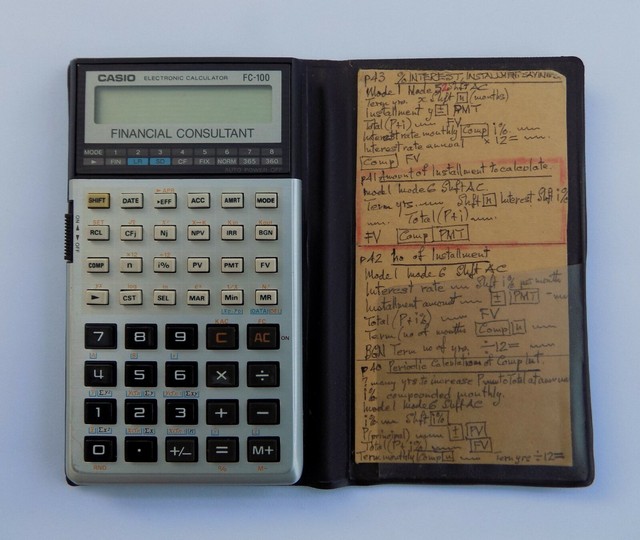 CASIO ELECTRONIC CALCULATOR FC-100
FINANCIAL CONSULTANT
MODE 1 2 3 4 5 6 7 8
► FIN LR SD CF FIX NORM 365 360
AUTO POWER OFF
ON ▲ ▼ OFF
SHIFT DATE ►EFF ACC AMRT MODE
RCL CFj Nj NPV IRR BGN
COMP n i% PV PMT FV
► CST SEL MAR Min MR
7 8 9 C AC ON
4 5 6 × ÷
1 2 3 + −
0 · +/− = M+
p.43 % INTEREST, INSTALLMENT SAVINGS
Mode 1 Mode Shift AC
Term yrs. x Shift n (months)
Installment y ± PMT
Total (P+i) FV
Interest rate monthly Comp i%
Interest rate annual × 12 =
Comp FV
p41 Amount of Installment to calculate.
Mode 1 mode 6 Shift AC
Term yts. Shift n Interest Shift i%
Total (P+i)
FV Comp PMT
p42 no of Installment
Mode 1 mode 6 Shift AC
Interest rate Shift i% per month
Installment amount ± PMT
Total (P+i%) FV
Term (no of months Comp n
BGN Term no of yrs. ÷12=
p40 Periodic Calculations of Comp int.
? many yts to increase P to Total at
% compounded monthly.
Mode 1 mode 6 Shift AC
i% Shift i%
P(principal) ± PV
Total (P+i%) FV
Term monthly Comp n Term yrs ÷12=